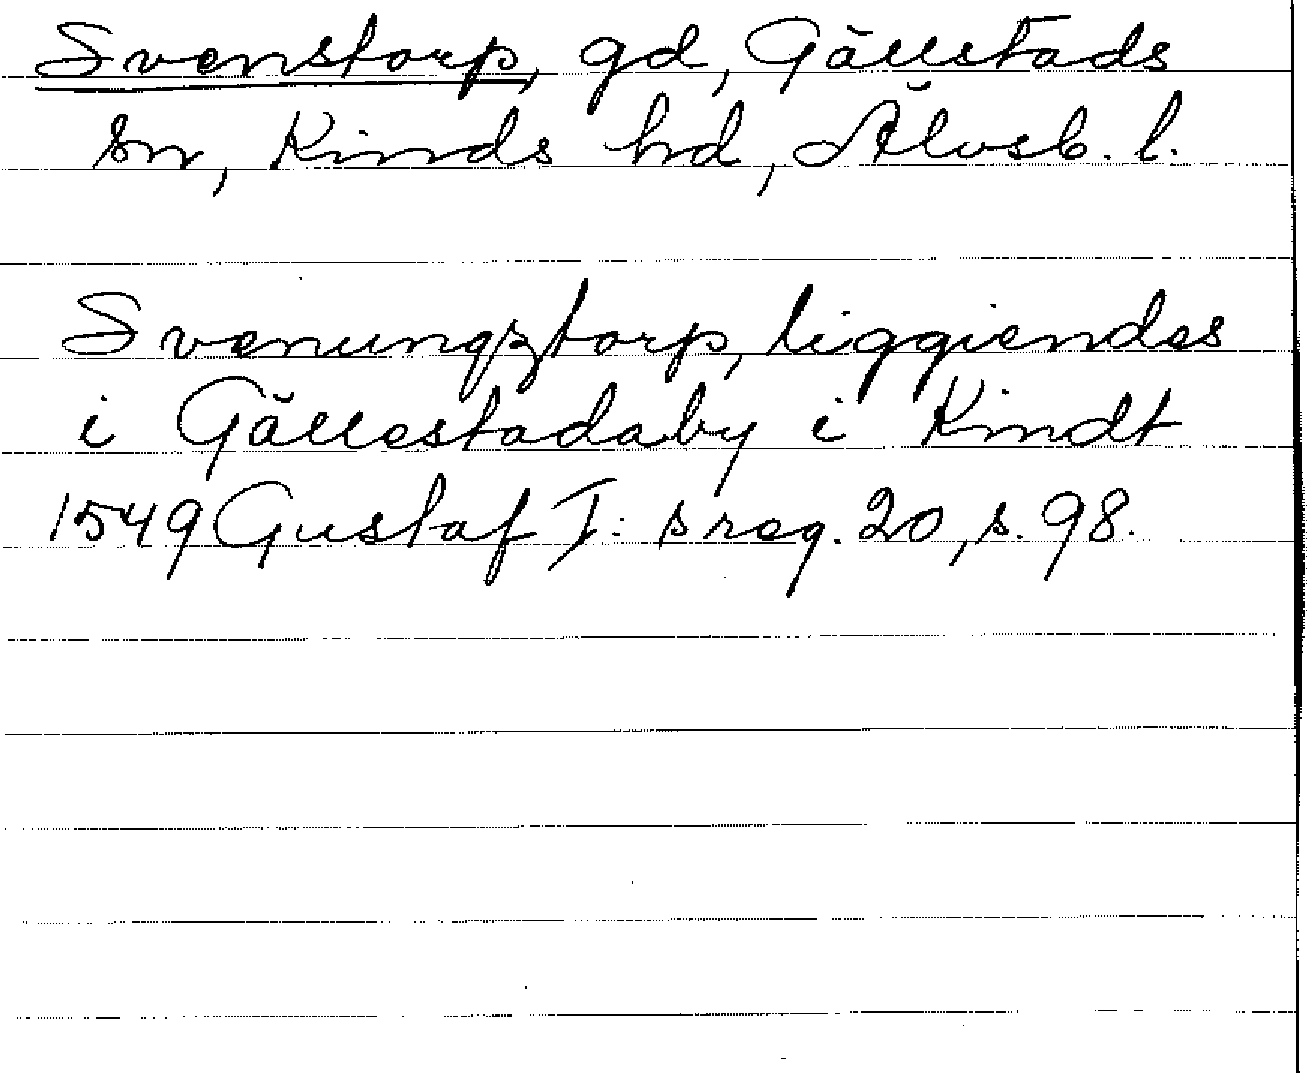 Svenstorp, gd, Gällstads
sn, Kinds hd, Älvsb. l.
Svenungztorp, liggiendes
i Gällestadaby i Kindt
1549 Gustaf I: s reg. 20, s. 98.